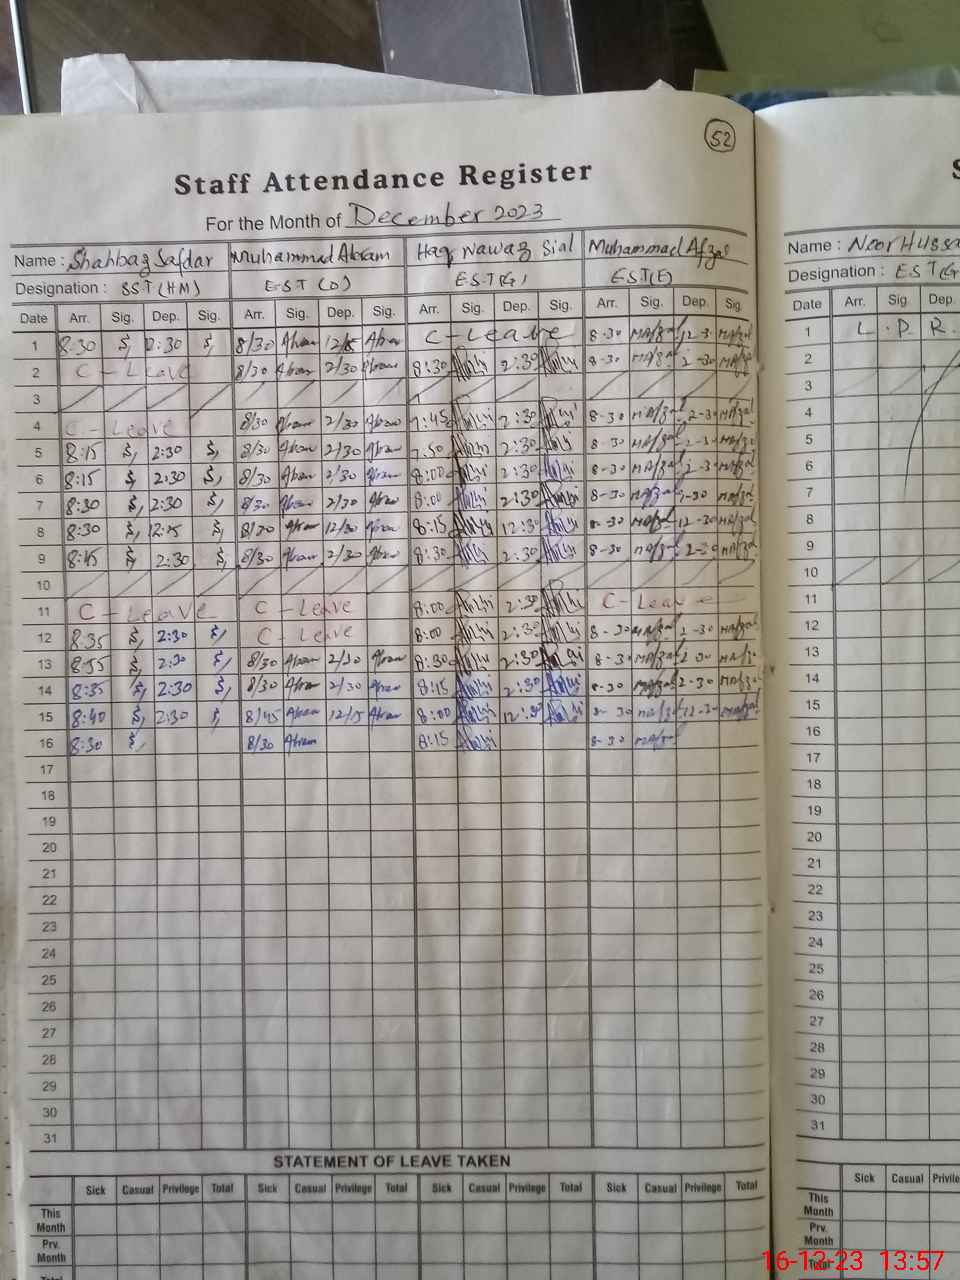 52
Staff Attendance Register
For the Month of December 2023
Name : Shahbaz Safdar Muhammad Akram Haq Nawaz Sial Muhammad Afzal
Designation : SST (HM) E.S.T (D) E.S.T(G) E.S.T(E)
Date Arr. Sig. Dep. Sig. Arr. Sig. Dep. Sig. Arr. Sig. Dep. Sig. Arr. Sig. Dep. Sig.
1 8:30 8/30 Akram Akram C - Leave 8-30 MAfzal 12-3 MAfzal
2 C - Leave 8/30 Akram 2/30 Akram 8:30 2:30 8-30 MAfzal 2-30 MAfzal
3
4 C - Leave 8/30 Akram 2/30 Akram 7:45 2:30 8-30 MAfzal 2-30 MAfzal
5 8:15 2:30 8/30 Akram 2/30 Akram 7:50 2:30 8-30 MAfzal 2-3 MAfzal
6 8:15 2:30 8/30 Akram 2/30 Akram 8:00 2:30 8-30 MAfzal 2-3 MAfzal
7 8:30 2:30 8/30 Akram 2/30 Akram 8:00 2:30 8-30 MAfzal 2-30 MAfzal
8 8:30 12:15 8/30 Akram 12/30 Akram 8:15 12:30 8-30 MAfzal 12-30 MAfzal
9 8:45 2:30 8/30 Akram 2/30 Akram 8:30 2:30 8-30 MAfzal 2-30 MAfzal
10
11 C - Leave C - Leave 8:00 2:30 C - Leave
12 8:35 2:30 C - Leave 8:00 2:30 8-30 MAfzal 2-30 MAfzal
13 8:55 2:30 8/30 Akram 2/30 Akram 8:30 2:30 8-30 MAfzal 2-30 MAfzal
14 8:35 2:30 8/30 Akram 2/30 Akram 8:15 2:30 8-30 MAfzal 2-30 MAfzal
15 8:40 2:30 8/45 Akram 12/15 Akram 8:00 12:30 8-30 MAfzal 12-30 MAfzal
16 8:30 8/30 Akram 8:15 8-30 MAfzal
17
18
19
20
21
22
23
24
25
26
27
28
29
30
31
STATEMENT OF LEAVE TAKEN
Sick Casual Privilege Total Sick Casual Privilege Total Sick Casual Privilege Total Sick Casual Privilege Total
This
Month
Prv.
Month
Total
S
Name : Noor Hussa
Designation : E.S.T(G
Date Arr. Sig. Dep.
1 L . P. R.
2
3
4
5
6
7
8
9
10
11
12
13
14
15
16
17
18
19
20
21
22
23
24
25
26
27
28
29
30
31
Sick Casual Privile
This
Month
Prv.
Month
Total
16-12-23 13:57